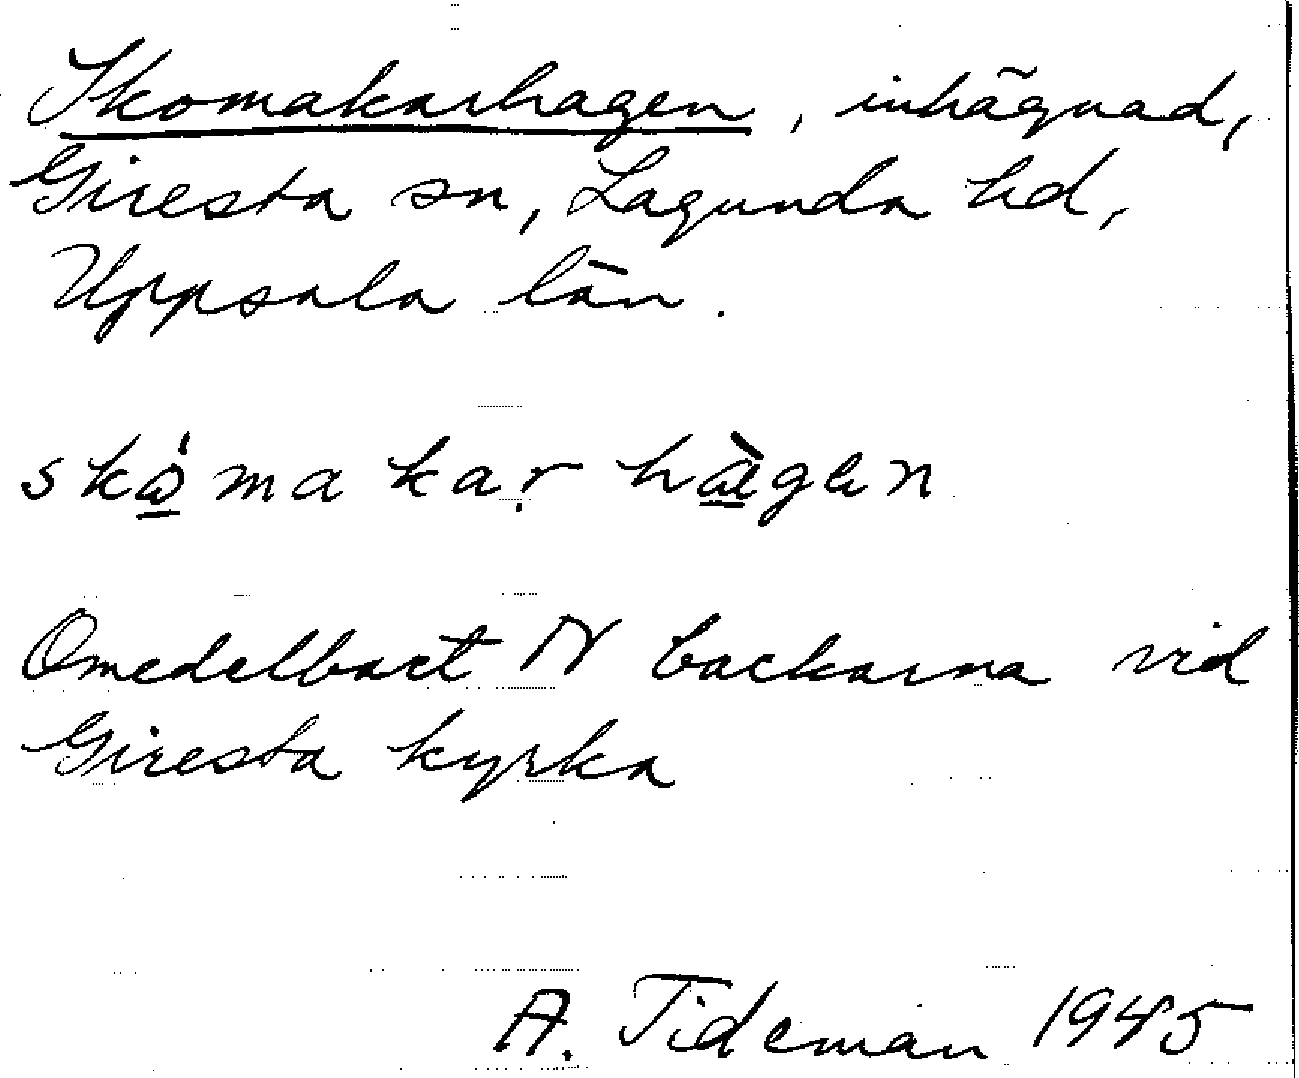 Skomakarhagen, inhägnad,
Giresta sn, Lagunda hd,
Uppsala län.
skò̱makaṛhà̱gen
Omedelbart N backarna vid
Giresta kyrka
A. Tideman 1945